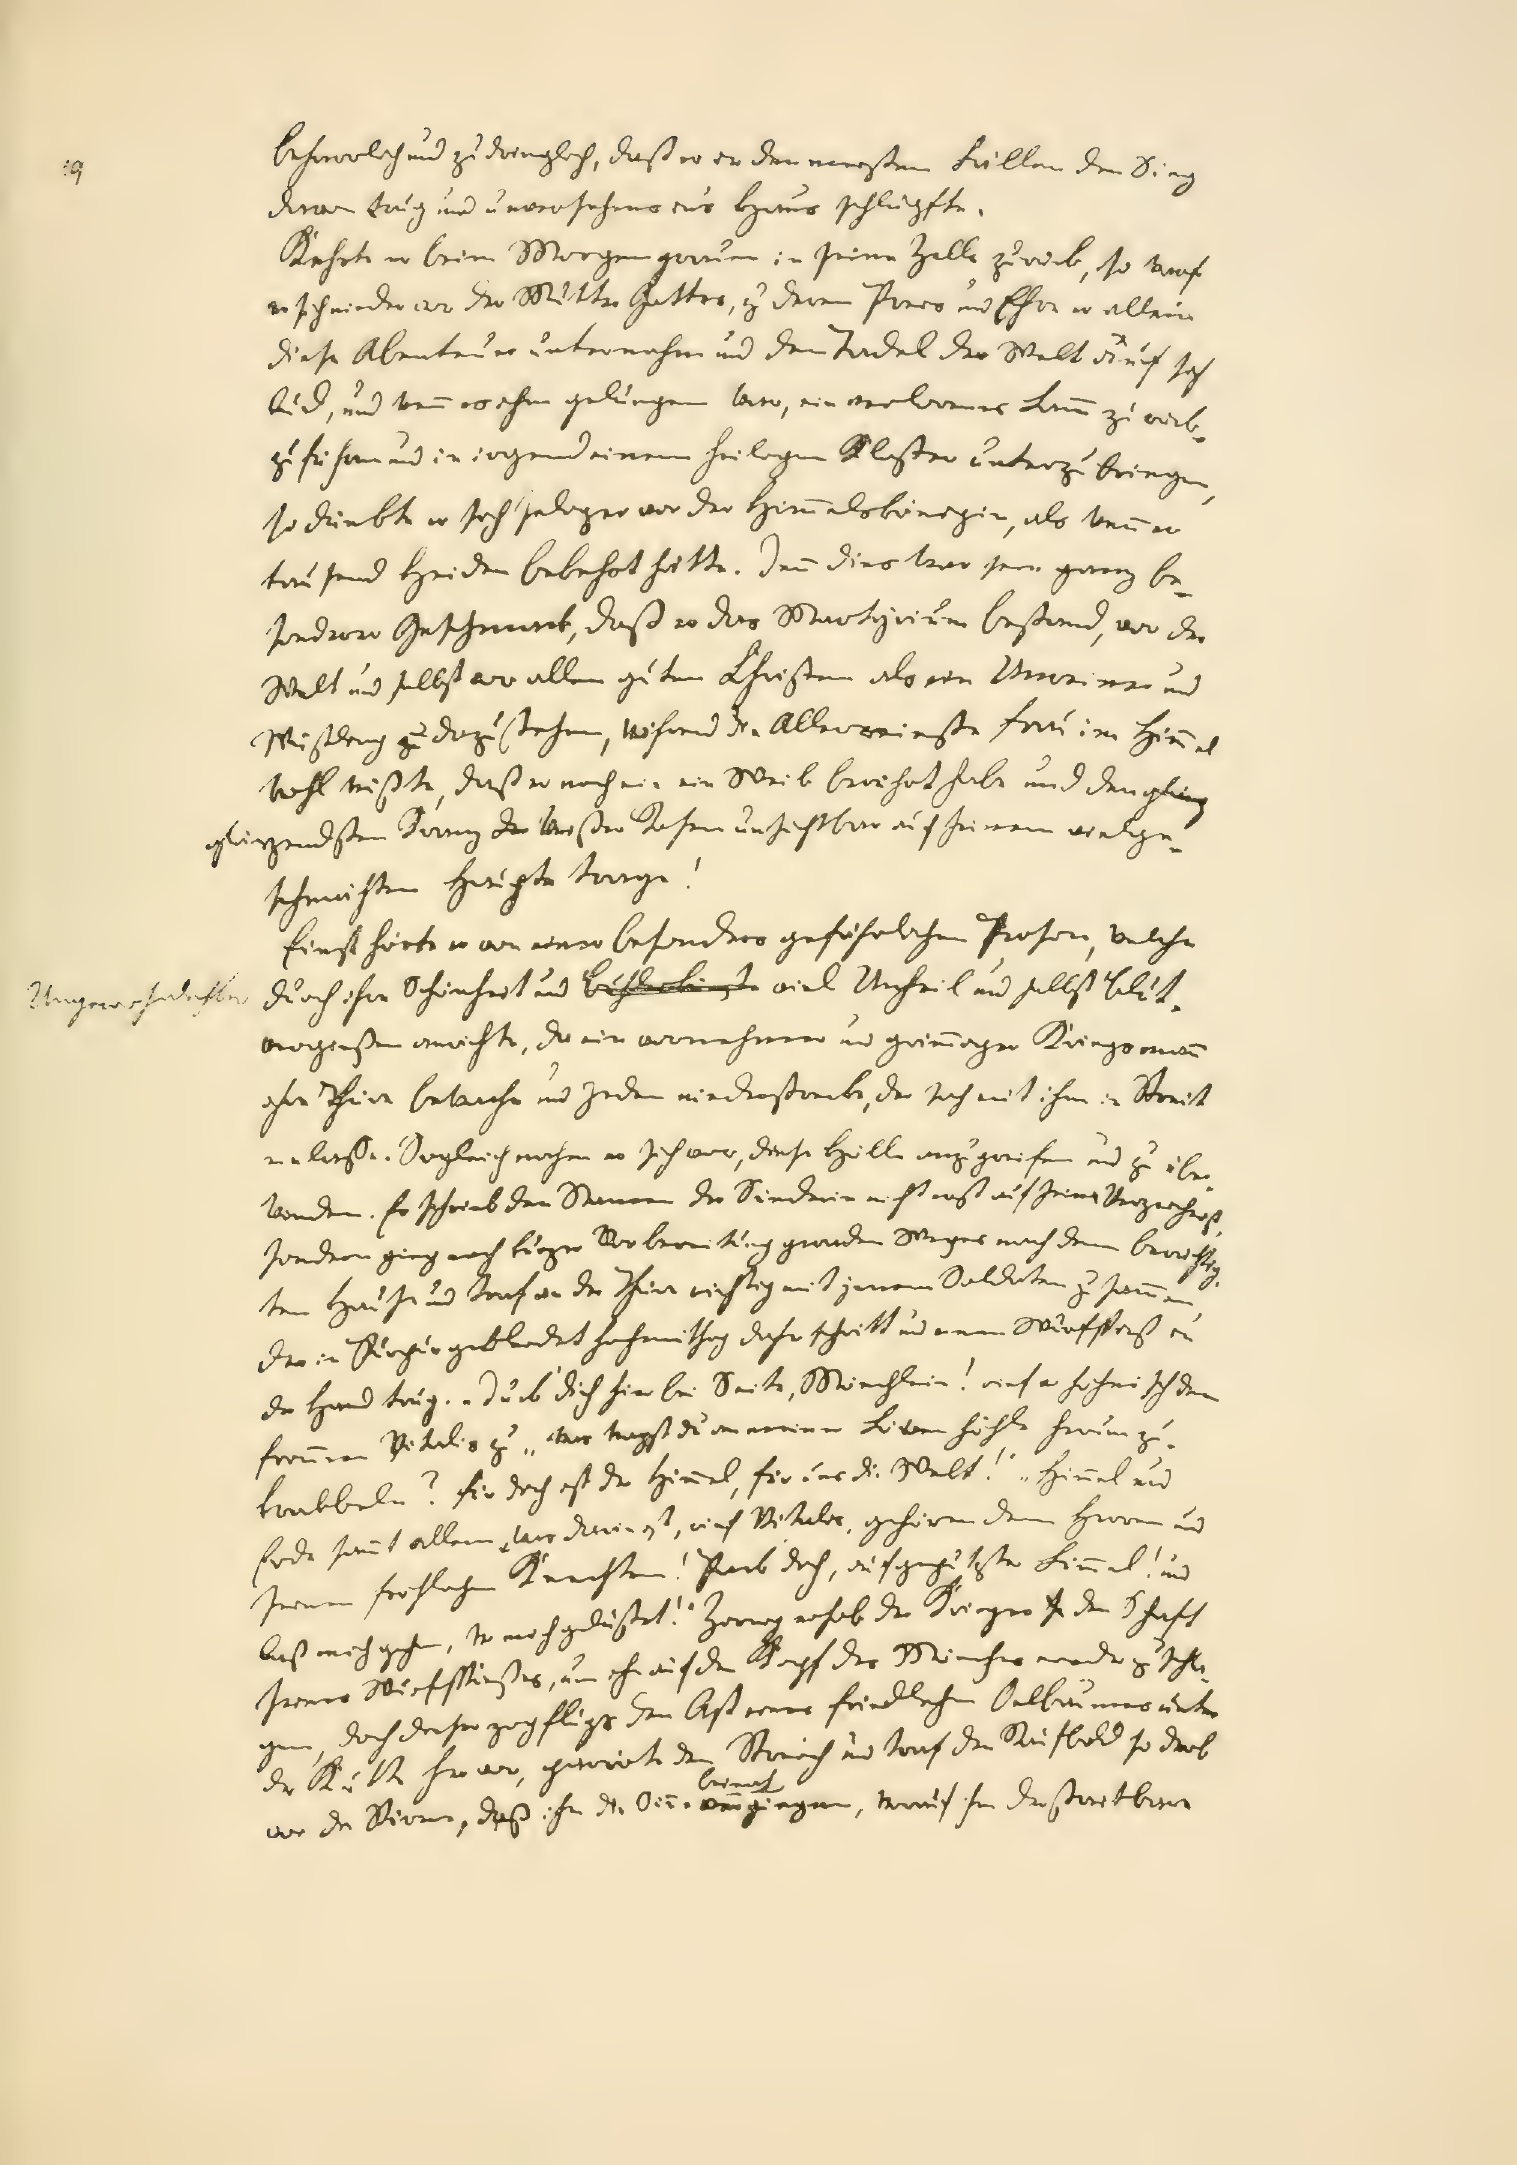 19
beharrlich und zudringlich, daß er in den meisten Fällen den Sieg
davon trug und unversehens ins Haus schlüpfte.
Kehrte er beim Morgengrauen in seine Zelle zurück, so warf
er sich nieder vor der Mutter Gottes, zu deren Preis und Ehre er allein
diese Abenteuer unternahm und den Tadel der Welt auf sich
lud, und wenn es ihm gelungen war, ein verlorenes Lamm zurück-
zuführen und in irgend einem heiligen Kloster unterzubringen,
so dünkte er sich seliger vor der Himmelskönigin, als wenn er
tausend Heiden bekehrt hätte. Denn dies war sein ganz be-
sonderer Geschmack, daß er das Martyrium bestand, vor der
Welt und selbst vor allen guten Christen als ein Unreiner und
Wüstling dazustehen, während die Allerreinste Frau im Himmel
wohl wußte, daß er noch nie ein Weib berührt habe und den
glänzendsten Kranz der weißen Rosen unsichtbar auf seinem vielge-
schmähten Haupte trage!
Einst hörte er von einer besonders gefährlichen Person, welche
Ungewöhnlichkeit
durch ihre Schönheit und Buhlerkünste viel Unheil und selbst Blut-
vergießen anrichte, da ein vornehmer und grimmiger Kriegsmann
ihre Thüre bewache und jeden niederstrecke, der sich mit ihm in Streit
einlasse. Sogleich nahm er sich vor, diese Hölle anzugreifen und zu über-
winden. Er schrieb den Namen der Sünderin nicht erst auf seine Verzeichniß,
sondern ging nach kurzer Vorbereitung geraden Weges nach dem berüchtig-
ten Hause und traf an der Thüre richtig mit jenem Soldaten zusammen,
der in Purpur gekleidet hochmüthig daher schritt und einen Wurfspieß in
der Hand trug. „Duck' dich hier bei Seite, Mönchlein! rief er höhnisch dem
frommen Vitalis zu, was wagst du an meiner Löwenhöhle herumzu-
krabbeln? Für dich ist der Himmel, für uns die Welt!" „Himmel und
Erde sammt allem, was darin ist, rief Vitalis, gehören dem Herren und
seinen fröhlichen Knechten! Pack dich, aufgeputzter Lümmel! und
laß mich gehen, wo mich gelüstet!" Zornig erhob der Krieger den Schaft
seines Wurfspießes, um ihn auf den Kopf des Mönches niederzuschla-
gen, doch dieser zog flugs den Ast eines friedlichen Oelbaumes unter
der Kutte hervor, parirte den Streich und traf den Raufbold so derb
vor die Stirne, daß ihm die Sinne beinah vergingen, worauf ihm der streitbare